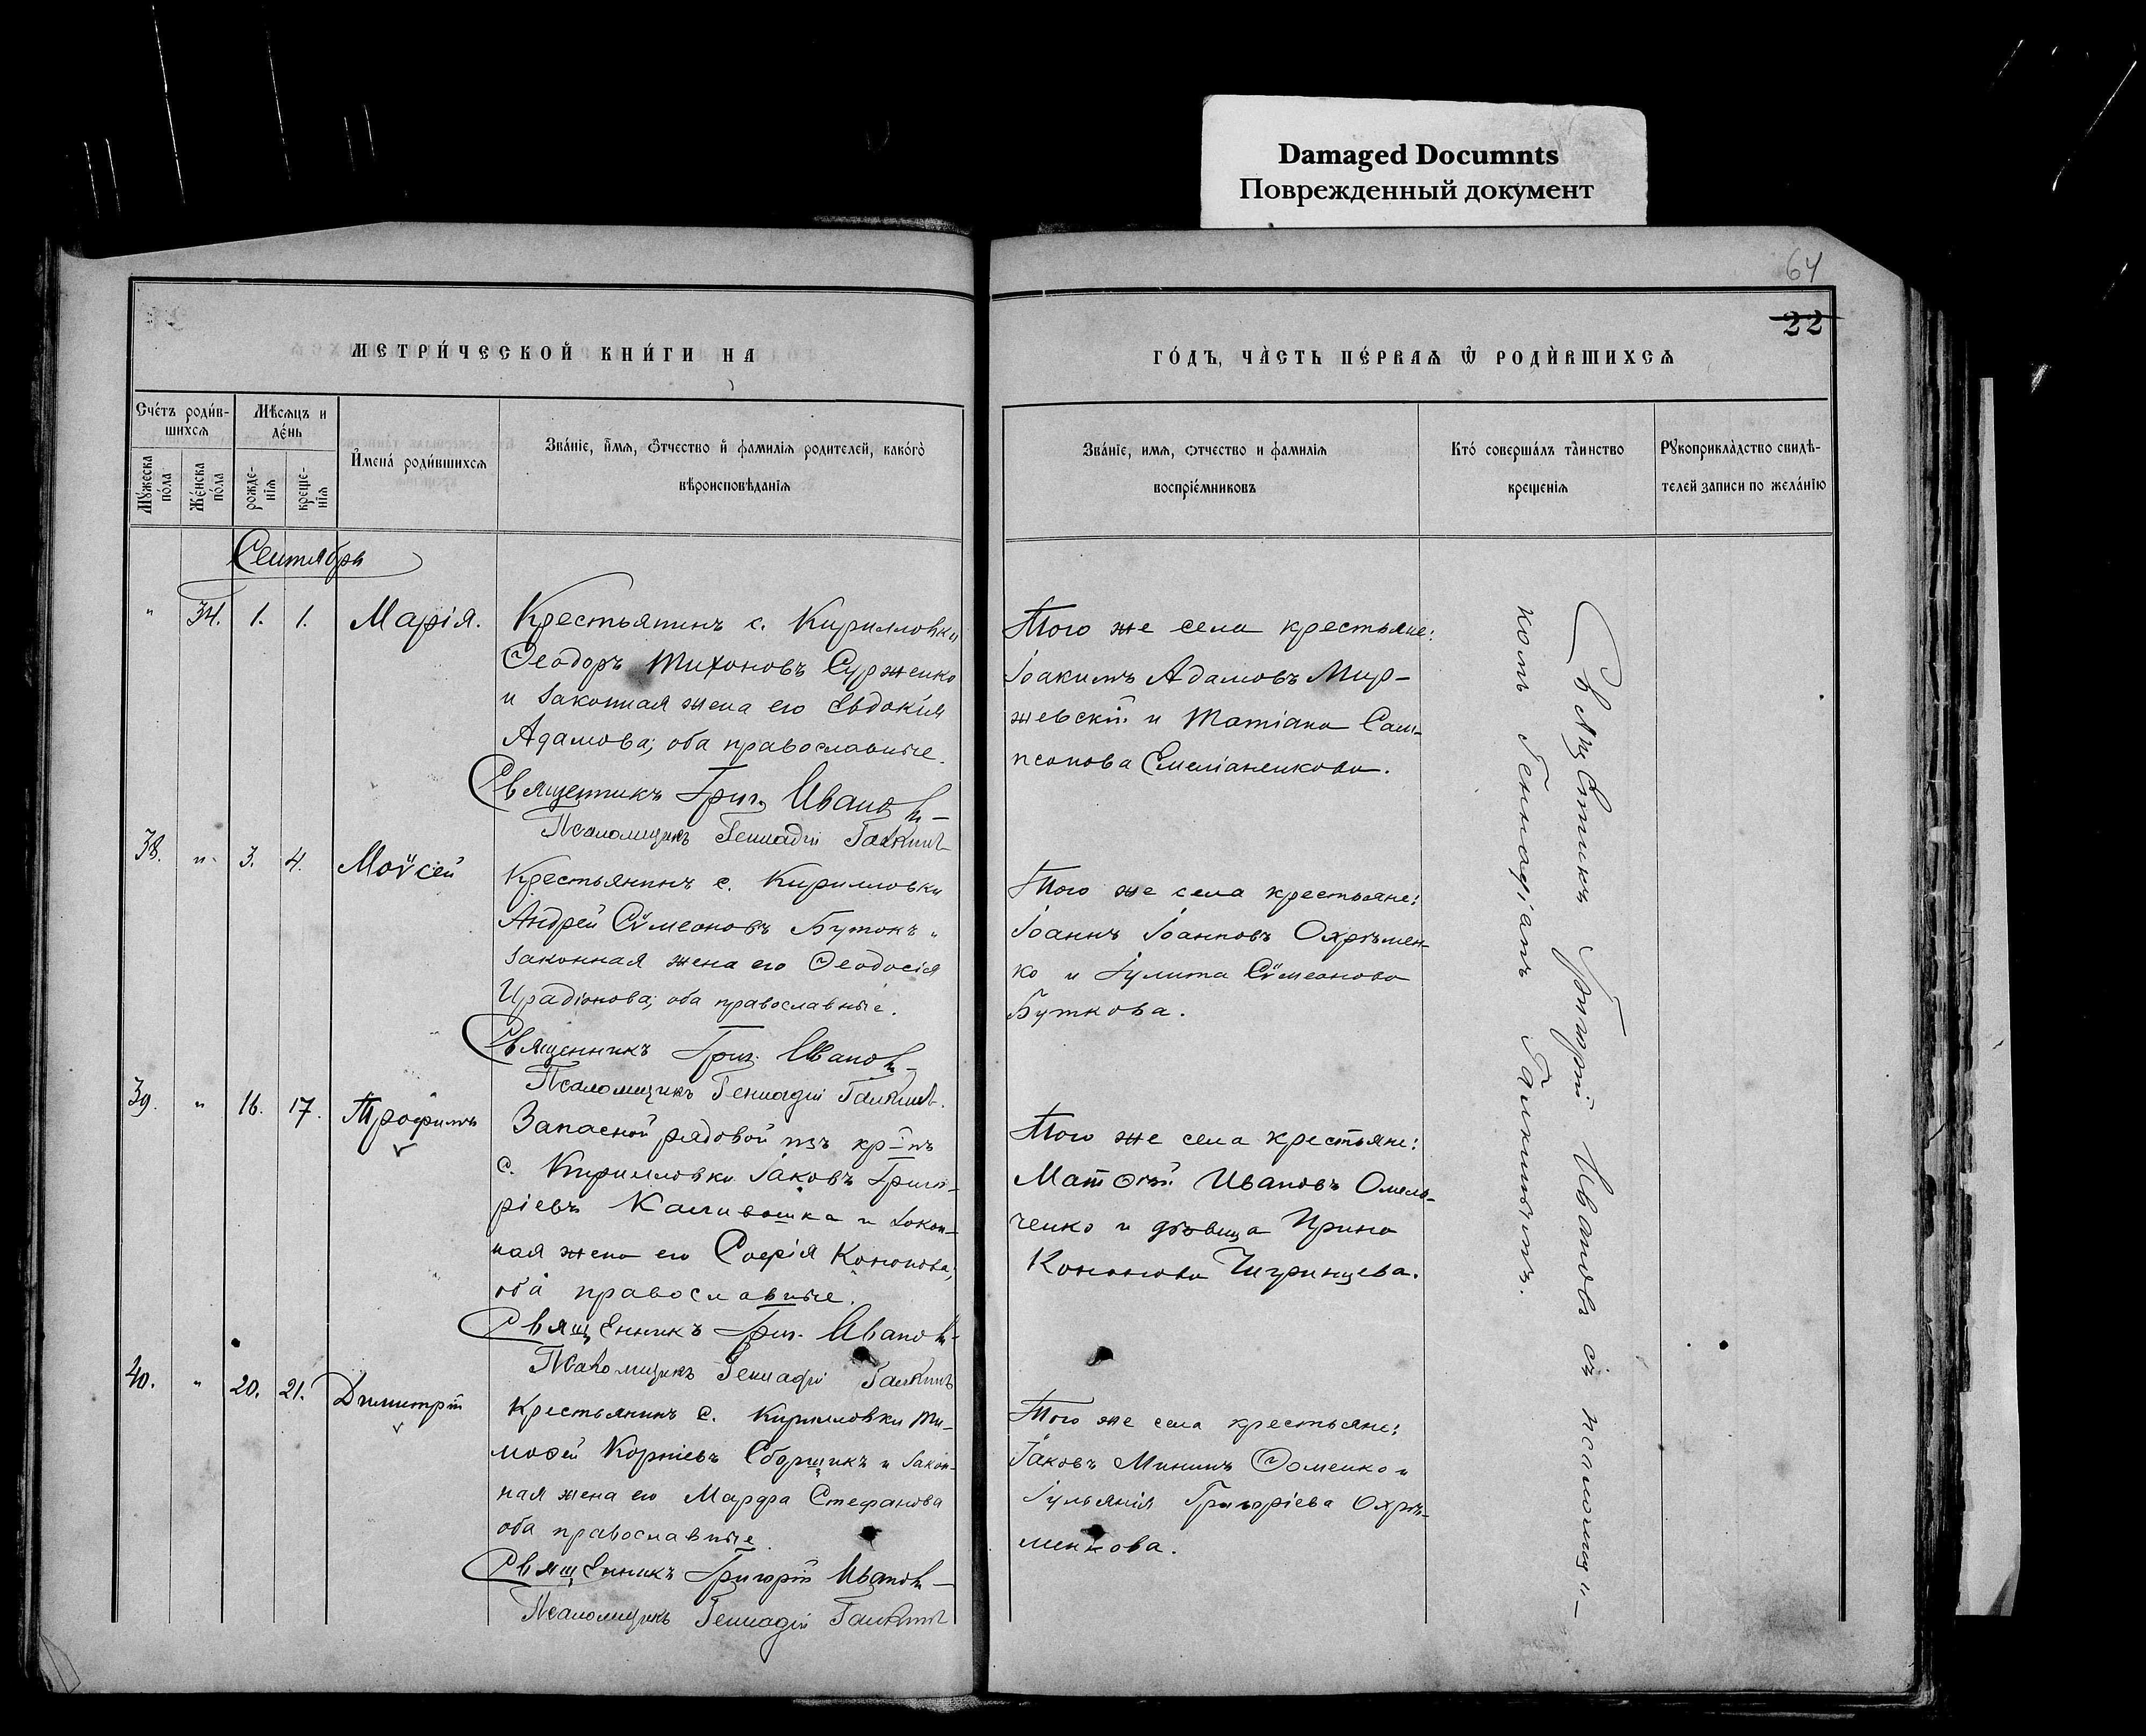 Damaged Documnts
Поврежденный документ
64
22
МЕТРИ́ЧЕСКОЙ КНИ́ГИ НА
ГО́ДЪ, ЧА̀СТЬ ПЕ́РВАѦ Ѡ҆ РОДИ̂ВШИХСѦ
Сче́тъ роди́в-
шихсѧ
Мѣсѧцъ и
де́нь
Му́жеска
по́ла
Же́нска
по́ла
рожде-
нїѧ
креще-
нїѧ
И҆мена́ роди́вшихсѧ
Зва́нїе, и҆́мѧ, ѻ҆́тчество и҆ фамилїѧ родителей, како́гѡ
вѣроисповѣданїѧ
Зва́нїе, имѧ, ѻтчество и фамилїѧ
воспрїе́мниковъ
Кто́ соверша́лъ та́инство
крещенїѧ
Рꙋкоприкла́дство свидѣ-
телей записи по жела́нїю
Сентябрь
" 34. 1. 1. Марія.
Крестьянинъ с. Кирилловки
Ѳеодоръ Тихоновъ Сурженко
и законная жена его Евдокія
Адамова; оба православные.
Священникъ Григ. Ивановъ
Псаломщикъ Геннадій Галкинъ
Того же села крестьяне:
Іоакимъ Адамовъ Мир-
жевскій и Татіана Сам-
псонова Емеліаненкова.
38. " 3. 4. Моѵсей
Крестьянинъ с. Кирилловки
Андрей Сѵмеоновъ Бутокъ и
законная жена его Ѳеодосія
Ирадіонова; оба православные.
Священникъ Григ. Ивановъ
Псаломщикъ Геннадій Галкинъ.
Того же села крестьяне:
Іоаннъ Іоанновъ Охрѣмен-
ко и Іулита Сѵмеонова
Буткова.
39. " 16. 17. Трофимъ
Запасной рядовой изъ кр-нъ
с. Кирилловки Іаковъ Григо-
ріевъ Каливошка и закон-
ная жена его Софія Кононова;
оба православные.
Священникъ Григ. Ивановъ
Псаломщикъ Геннадій Галкинъ
Того же села крестьяне:
Матѳей Ивановъ Омель-
ченко и дѣвица Ирина
Кононова Чигринцева.
40. " 20. 21. Димитрій
Крестьянинъ с. Кирилловки Ти-
моѳей Корніевъ Сборщикъ и закон-
ная жена его Марфа Стефанова
оба православные.
Священникъ Григорій Ивановъ
Псаломщикъ Геннадій Галкинъ
Того же села крестьяне:
Іаковъ Мининъ Ѳоменко и
Іульянія Григоріева Охрѣ-
менкова.
Священникъ Григорій Ивановъ съ псаломщи-
комъ Геннадіемъ Галкинымъ.